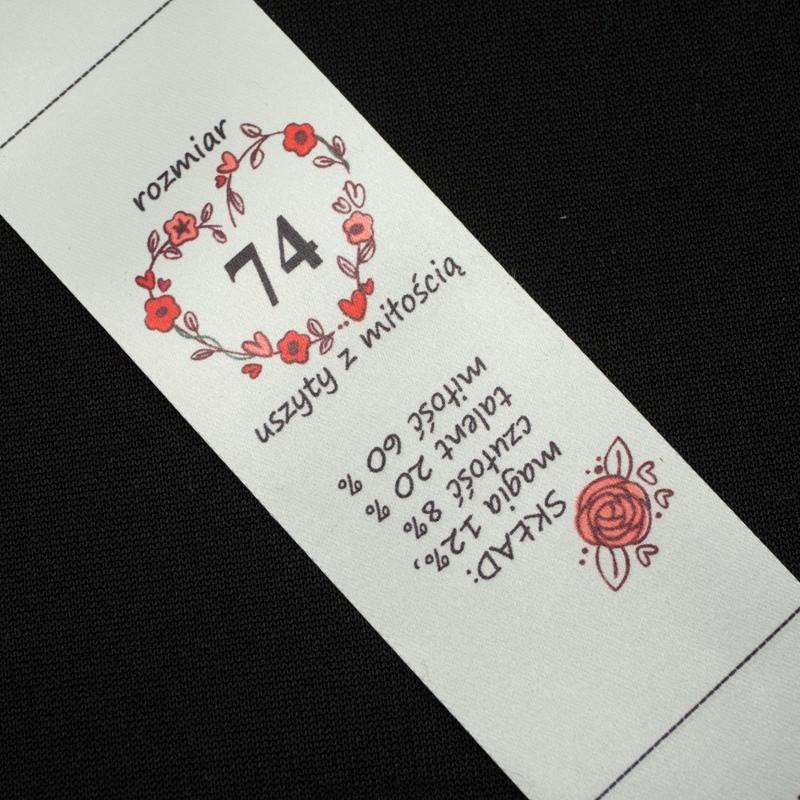 rozmiar
74
uszyty z miłością
SKŁAD:
magia 12%,
czułość 8%
talent 20 %
miłość 60 %